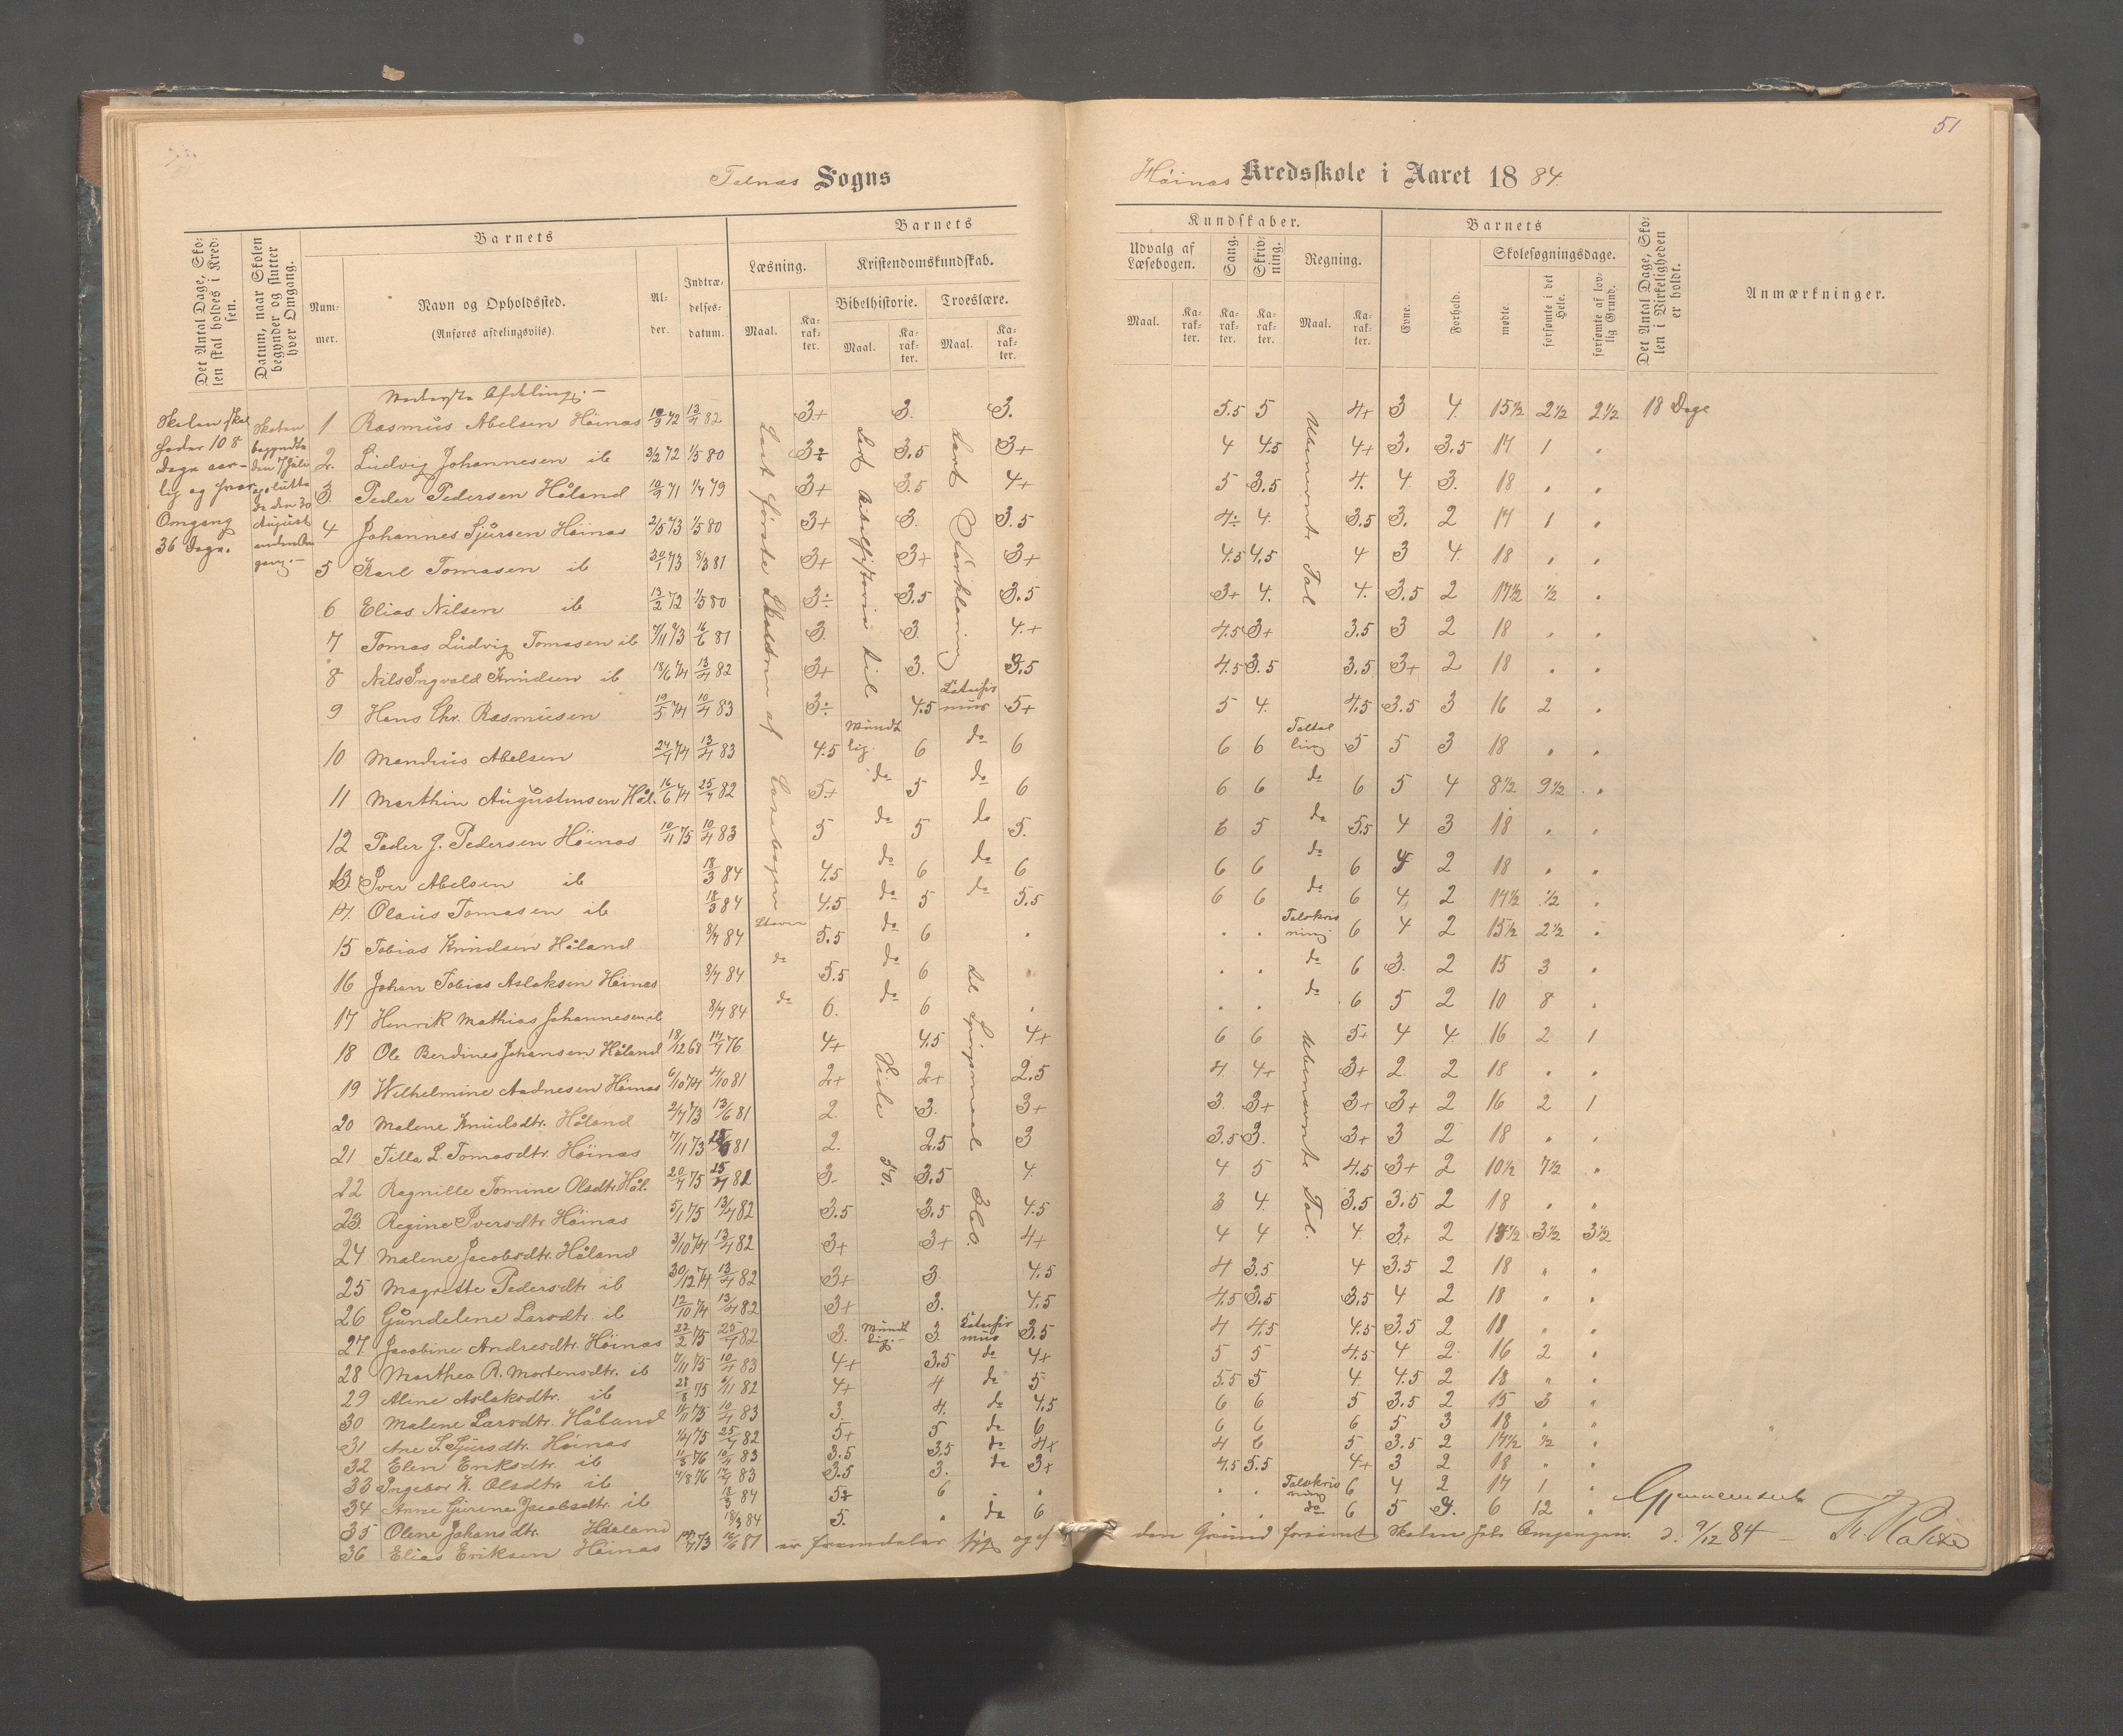 51
Sogns
Høinæs Kredsskole i Aaret 1884.
Det Antal Dage, Skolen skal holdes i Kredsen.
Datum, naar Skolen begynder og slutter hver Omgang.
Barnets
Nummer.
Navn og Opholdssted.
(Anføres afdelingsvis).
Alder.
Indtrædelsesdatum.
Barnets
Læsning.
Maal.
Karakter.
Kristendomskundskab.
Bibelhistorie.
Maal.
Karakter.
Troeslære.
Maal.
Karakter.
Kundskaber.
Udvalg af Læsebogen.
Maal.
Karakter.
Sang.
Karakter.
Skrivning.
Karakter.
Regning.
Maal.
Karakter.
Barnets
Evne.
Forhold.
Skolesøgningsdage.
mødte.
forsømte i det Hele.
forsømte af lovlig Grund.
Det Antal Dage, Skolen i Virkeligheden er holdt.
Anmærkninger.
Skolen skal
holdes 108
Dage aar-
lig og hver
Omgang
36 Dage.
Skolen
begyndte
den 7 Juli
og slutte
de den 30
August
Nederste Afdeling.
1 Rasmus Abelsen Höinæs 3+ 3. 3. 5.5 5 4+ 3 4. 15½ 2½ 2½ 18 Dage
2. Ludvig Johannesen ib 3/2 72 1/5 80 3.5 3+ 4 4.5 4+ 3. 3.5 17 1 .
3 Peder Pedersen Håland 10/9 71 1/7 79 3+ 3.5 4+ 5 3.5 4. 4 3. 18 . .
4 Johannes Sjursen Höinæs 2/5 73 1/5 80 3+ 3. 3.5 4÷ 4. 3.5 3. 2 17 1 .
5 Karl Tomasen ib 30/1 73 8/3 81 3+ 3+ 3+ 4.5 4.5 4 3 4. 18 . .
6 Elias Nilsen ib 13/2 72 1/5 80 3÷ 3.5 3.5 3+ 4. 4. 3.5 2 17½ ½ .
7 Tomas Ludvig Tomasen ib 7/11 73 16/6 81 3. 3. 4.+ 4.5 3+ 3.5 3 2 18 . .
8 Nils Ingvald Knudsen ib 18/6 74 13/4 82 3+ 3. 3.5 4.5 3.5 3.5 3+ 2 18 . .
9 Hans Chr. Rasmusen 19/5 74 10/4 83 3÷ 4.5 5+ 5 4. 4.5 3.5 3 16 2 .
10 Mandius Abelsen 24/4 74 13/4 83 4.5 Mundt lig. 6 do 6 6 6 5 5 3 18 . .
11 Marthin Augustensen Hål. 16/6 74 25/4 82 5+ do 5 do 6 6 6 do 6 5 4 8½ 9½ .
12 Peder J. Pedersen Höinæs 10/11 75 10/4 83 5 do 5 do 5. 6 5 do 5.5 4 3 18 . .
13. Iver Abelsen ib 18/3 84 4.5 do 6 do 6 6 6 do 6 2 18 . .
14. Olaus Tomasen ib 18/3 84 4.5 do 5 do 5.5 6 6 do 6 4. 2 17½ ½ .
15 Tobias Knudsen Håland 8/7 84 5.5 do 6 . . . 6 4 2 15½ 2½ .
16 Johan Tobias Aslaksen Höinæs 8/7 84 do 5.5 do 6 . . . do 6 3. 2 15 3 .
17 Henrik Mathias Johannesen ib 8/7 84 do 6. do 6 . . . do 6 5 2 10 8 .
18 Ole Berdines Johansen Håland 18/12 68 4+ 4.5 4+ 6 6 5+ 4 4. 16 2 1
19 Wilhelmine Aadnesen Höinæs 6/10 74 4/10 81 2+ 2+ 2.5 4. 4+ 3+ 2 2 18 . .
20 Malene Knudsdtr. Håland 2/7 73 13/6 81 2. 3. 3+ 3. 3+ 3+ 3+ 2 16 2 1
21 Tilla L. Tomasdtr. Höinæs 7/11 73 2. 2.5 3 3.5 3. 3+ 3 2 18 . .
22 Ragnille Tomine Olsdtr. Hål. 20/4 75 3. 3.5 4. 4 5 4.5 3+ 2 10½ 7½ .
23 Regine Iversdtr Höinæs 5/1 75 13/4 82 3.5 3.5 4.5 3 4. 3.5 3.5 2 18 . .
24 Malene Jacobsdtr. Håland 3/10 74 13/4 82 3+ 3+ 4+ 4 4 4. 3+ 2 3½ 3½
25 Magrette Pedersdtr ib 30/12 74 13/4 82 3+ 3. 4.5 4 3.5 4 3.5 2 18 . .
26 Gundelene Larsdtr. ib 12/10 74 13/4 82 3+ 3. 4.5 4.5 3.5 3.5 4 2 18 . .
27 Jacobine Andresdtr. Höinæs 22/2 75 25/4 82 3. Mundt lig. 3. 3.5 4 4.5 4.5 3.5 2 18 . .
28 Marthea R. Mortensdtr. ib 7/11 75 10/4 83 4+ 3.5 do 4+ 5 5 4.5 4 2 16 2 .
29 Aline Aslaksdtr. ib 28/8 75 6/11 82 4+ 4 do 5 5.5 5 4. 4.5 2 18 . .
30 Malene Larsdtr. Håland 10/4 83 3. 4. do 4.5 6 6 5 3.5 2 15 3 .
31 Ane S. Sjursdtr. Höinæs 1/4 75 25/4 82 5+ 5 do 6 6 6 6 5 3 18 . .
32 Elen Eriksdtr. ib 10/4 83 3.5 3.5 do 4+ 4 6 5 3.5 2 17½ ½ .
33 Ingebor K. Olsdtr. ib 4/8 76 3.5 3. do 3+ 4.5 5.5 4+ 3 2 18 . .
34 Anne Gurine Jacobsdtr. ib 18/3 84 6 . . . 6 4 2 17 1 .
35 Oline Johansdtr. Haaland 18/3 84 5. . do 6 . . do 6 5 6 12 .
36 Elias Eriksen Höinæs er fremdeles syg og af den Grund forsømt Skolen hele Omgangen.
9/12 84